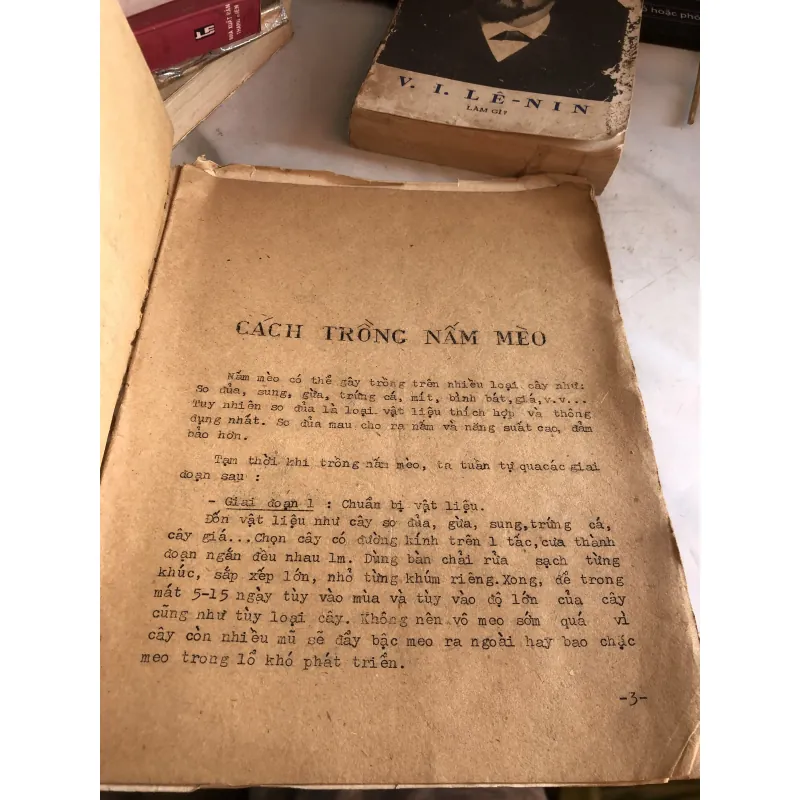 NHÀ XUẤT BẢN
THANH NIÊN
ó hoặc phó
V. I. LÊ-NIN
LÀM GÌ?
CÁCH TRỒNG NẤM MÈO
Nấm mèo có thể gây trồng trên nhiều loại cây như:
So đủa, sung, gừa, trứng cá, mít, bình bát, giá, v.v...
Tuy nhiên so đủa là loại vật liệu thích hợp và thông
dụng nhất. So đủa mau cho ra nấm và năng suất cao, đảm
bảo hơn.
Tạm thời khi trồng nấm mèo, ta tuần tự quacác giai
đoạn sau :
- Giai đoạn 1 : Chuẩn bị vật liệu.
Đốn vật liệu như cây so đủa, gừa, sung,trứng cá,
cây giá...Chọn cây có đường kính trên 1 tấc,cưa thành
đoạn ngắn đều nhau 1m. Dùng bàn chải rửa sạch từng
khúc, sắp xếp lớn, nhỏ từng khúm riêng.Xong, để trong
mát 5-15 ngày tùy vào mùa và tùy vào độ lớn của cây
cũng như tùy loại cây. Không nên vô meo sớm quá vì
cây còn nhiều mũ sẽ đẩy bậc meo ra ngoài hay bao chặc
meo trong lổ khó phát triển.
-3-